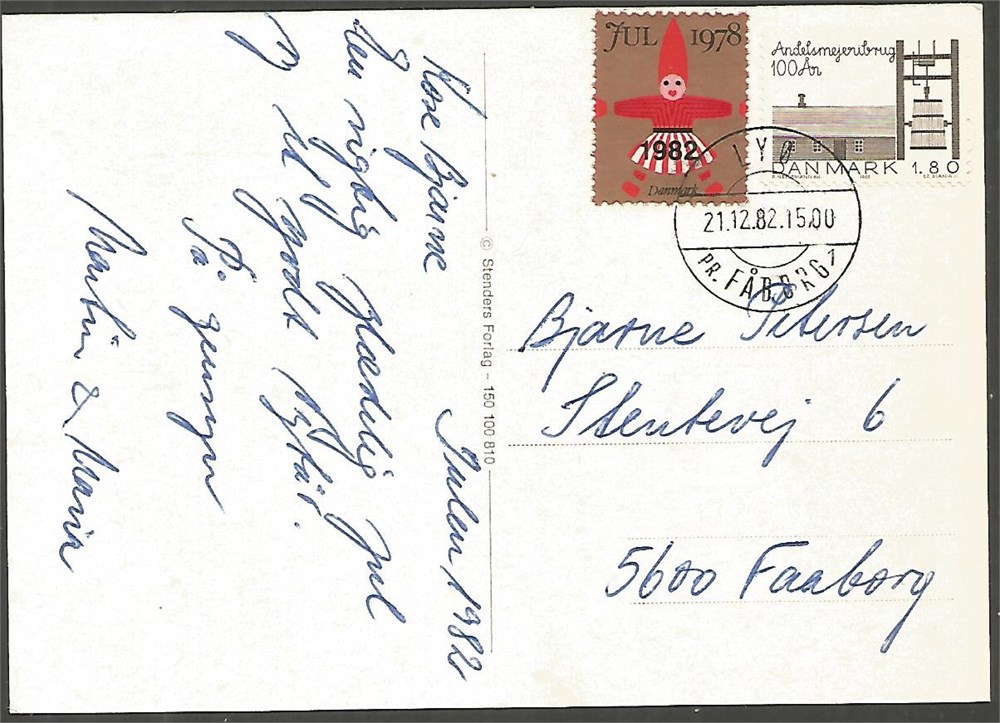 Julen 1982
Kære Bjarne
En rigtig Glædelig Jul
og et godt Nytår.
På gensyn
Martin & Maria
© Stenders Forlag – 150 100 810
JUL 1978
1982
Danmark
Andelsmejeribrug
100 År
DANMARK 1.80
LYØ
21.12.82.15.00
PR. FÅBORG 1
Bjarne Petersen
Stentevej 6
5600 Faaborg